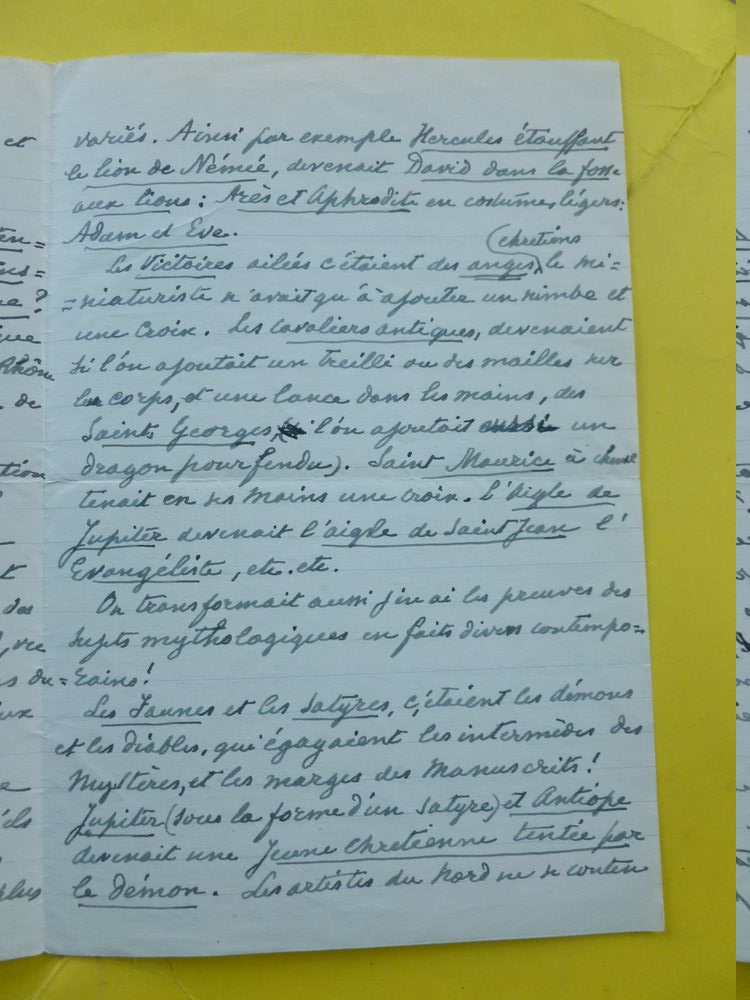 variés. Ainsi par exemple Hercules étouffant
le lion de Némée, devenait David dans la fosse
aux lions: Arès et Aphrodite en costumes légers:
Adam et Eve.
(chretiens
Les Victoires ailées c'étaient des anges, le mi=
=niaturiste n'avait qu'à ajouter un nimbe et
une Croix. Les Cavaliers antiques, devenaient
si l'on ajoutait un treilli ou des mailles sur
le corps, et une lance dans les mains, des
Saints Georges, l'on ajoutait un
dragon pourfendu). Saint Maurice à cheval
tenait en ses mains une croix. l'Aigle de
Jupiter devenait l'aigle de Saint Jean l'
Evangéliste, etc. etc.
On transformait aussi j'en ai les preuves des
sujets mythologiques en faits divers contempo=
=rains!
Les Faunes et les Satyres, c'étaient les démons
et les diables, qui égayaient les intermèdes des
Mystères, et les marges des Manuscrits!
Jupiter (sous la forme d'un Satyre) et Antiope
devenait une Jeune Chretienne tentée par
le démon. Les artistes du Nord ne se conten
et
ten=
ens=
ue ?
que
Rhône
de
tion
t
des
, vec
s du
ux
e
éls
plus